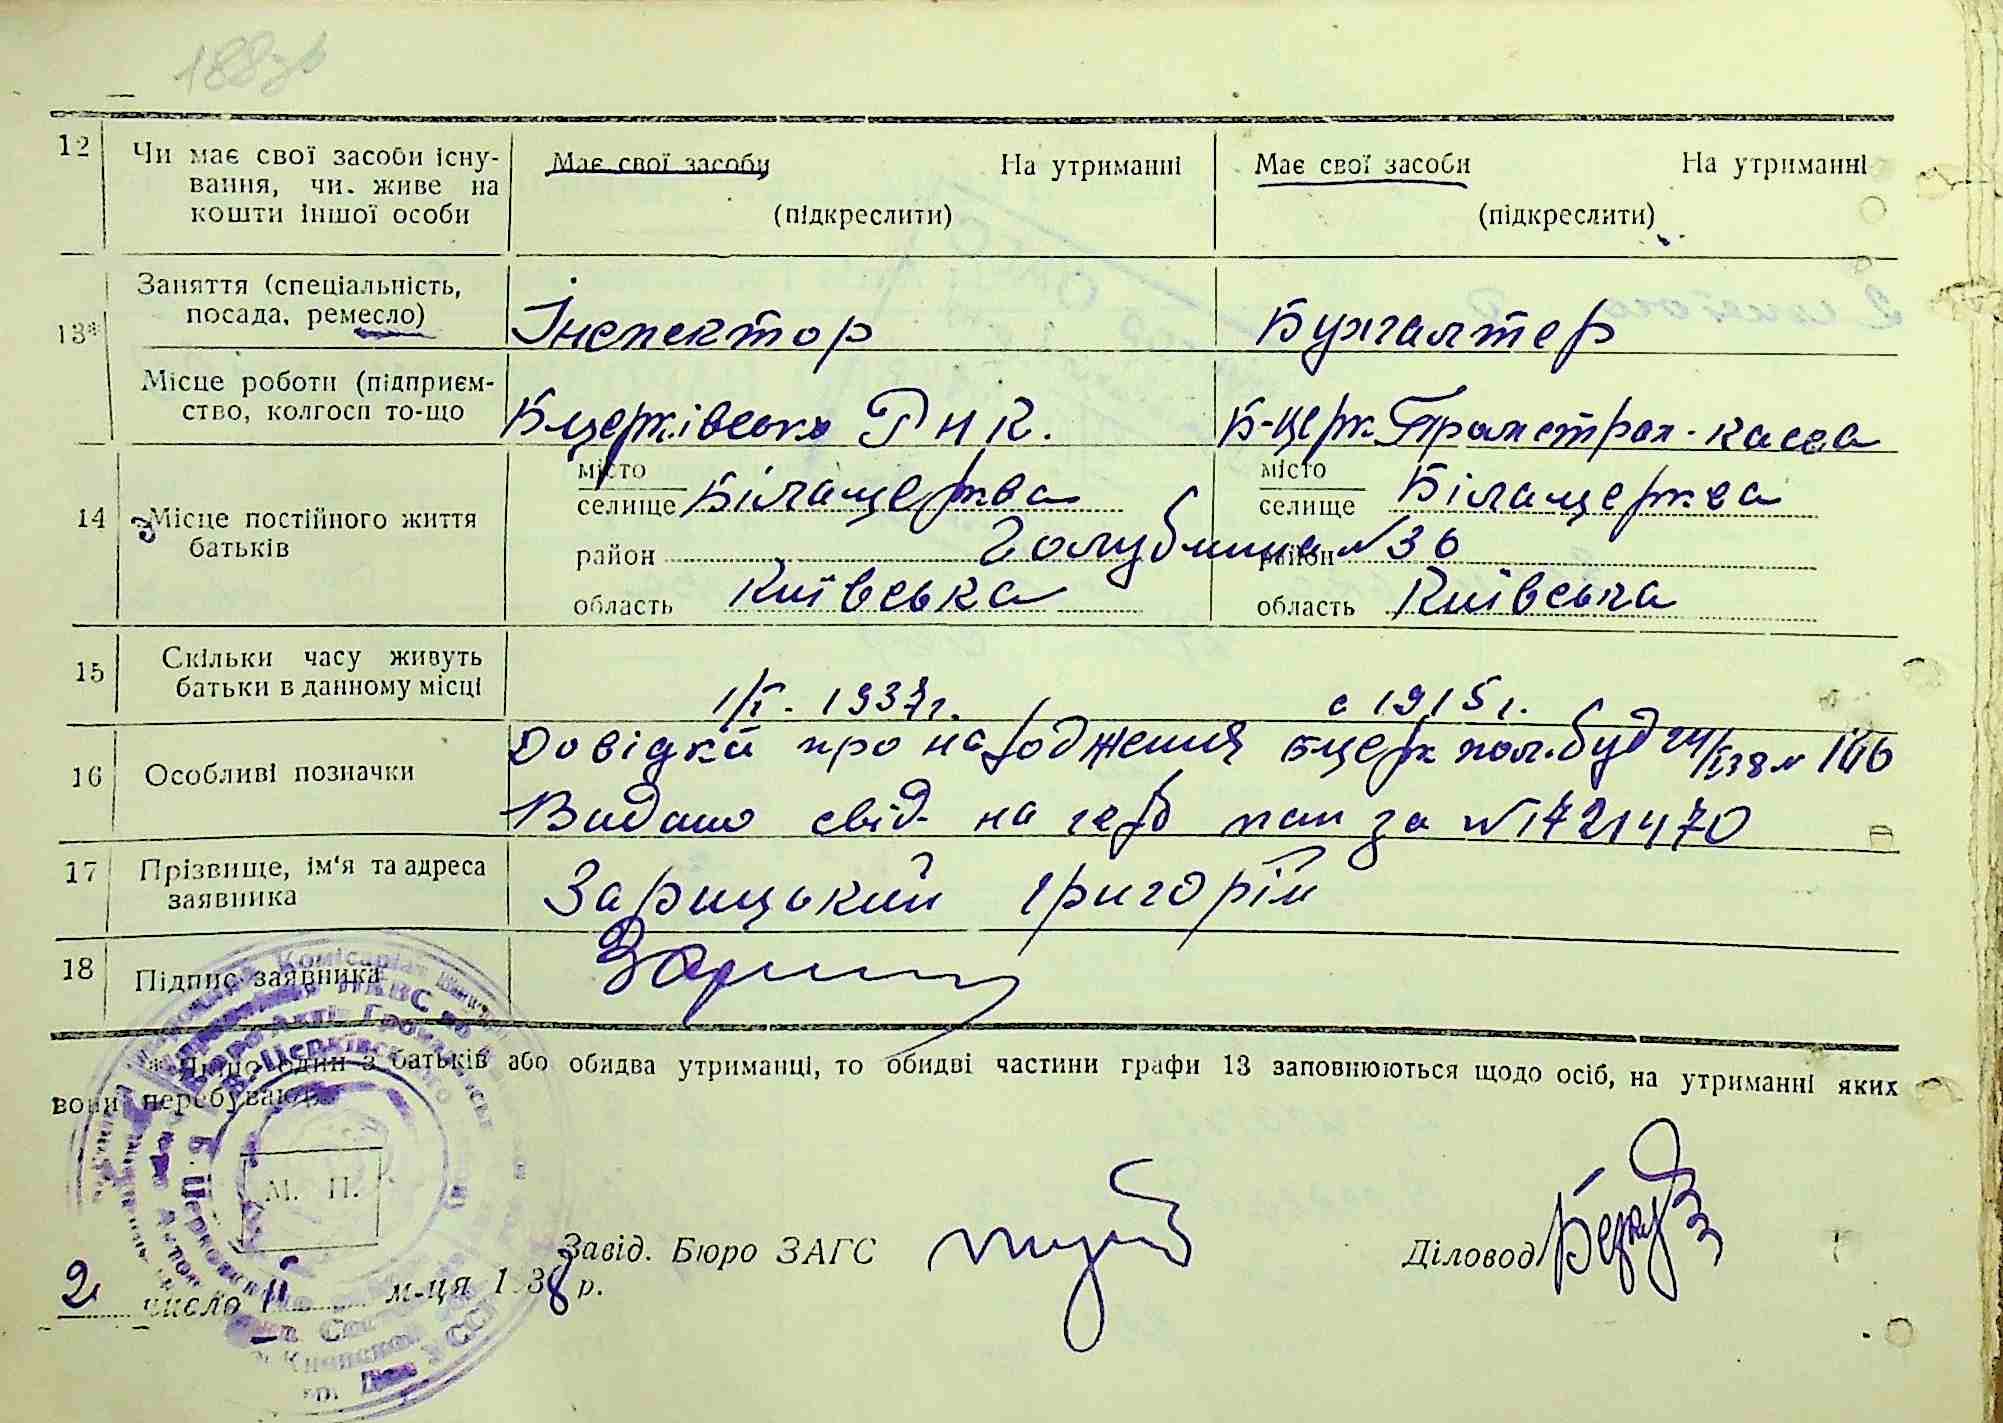 188зв
12 Чи має свої засоби існу-
вання, чи живе на
кошти іншої особи
Має свої засоби На утриманні
(підкреслити)
Має свої засоби На утриманні
(підкреслити)
13* Заняття (спеціальність,
посада, ремесло)
Інспектор Бухгалтер
Місце роботи (підприєм-
ство, колгосп то-що
Бцерківсько Р Н К. Б-церк. Промстрах-касса
14 Місце постійного життя
батьків
місто
селище Білацерква
район Голубина № 36
область Київська
місто
селище Білацерква
район
область Київська
15 Скільки часу живуть
батьки в данному місці
1/V. 1937 г. с 1915 г.
16 Особливі позначки
Довідка про народження Бцерк пол. буд 24/I 38 № 146
Видано свід на герб пап за № 1721470
17 Прізвище, ім'я та адреса
заявника
Зарицький Григорій
18 Підпис заявника
Зариц
* Якщо один з батьків або обидва утриманці, то обидві частини графи 13 заповнюються щодо осіб, на утриманні яких
вони перебувають.
М. П.
Завід. Бюро ЗАГС
Діловод
2 число II м-ця 1938 р.